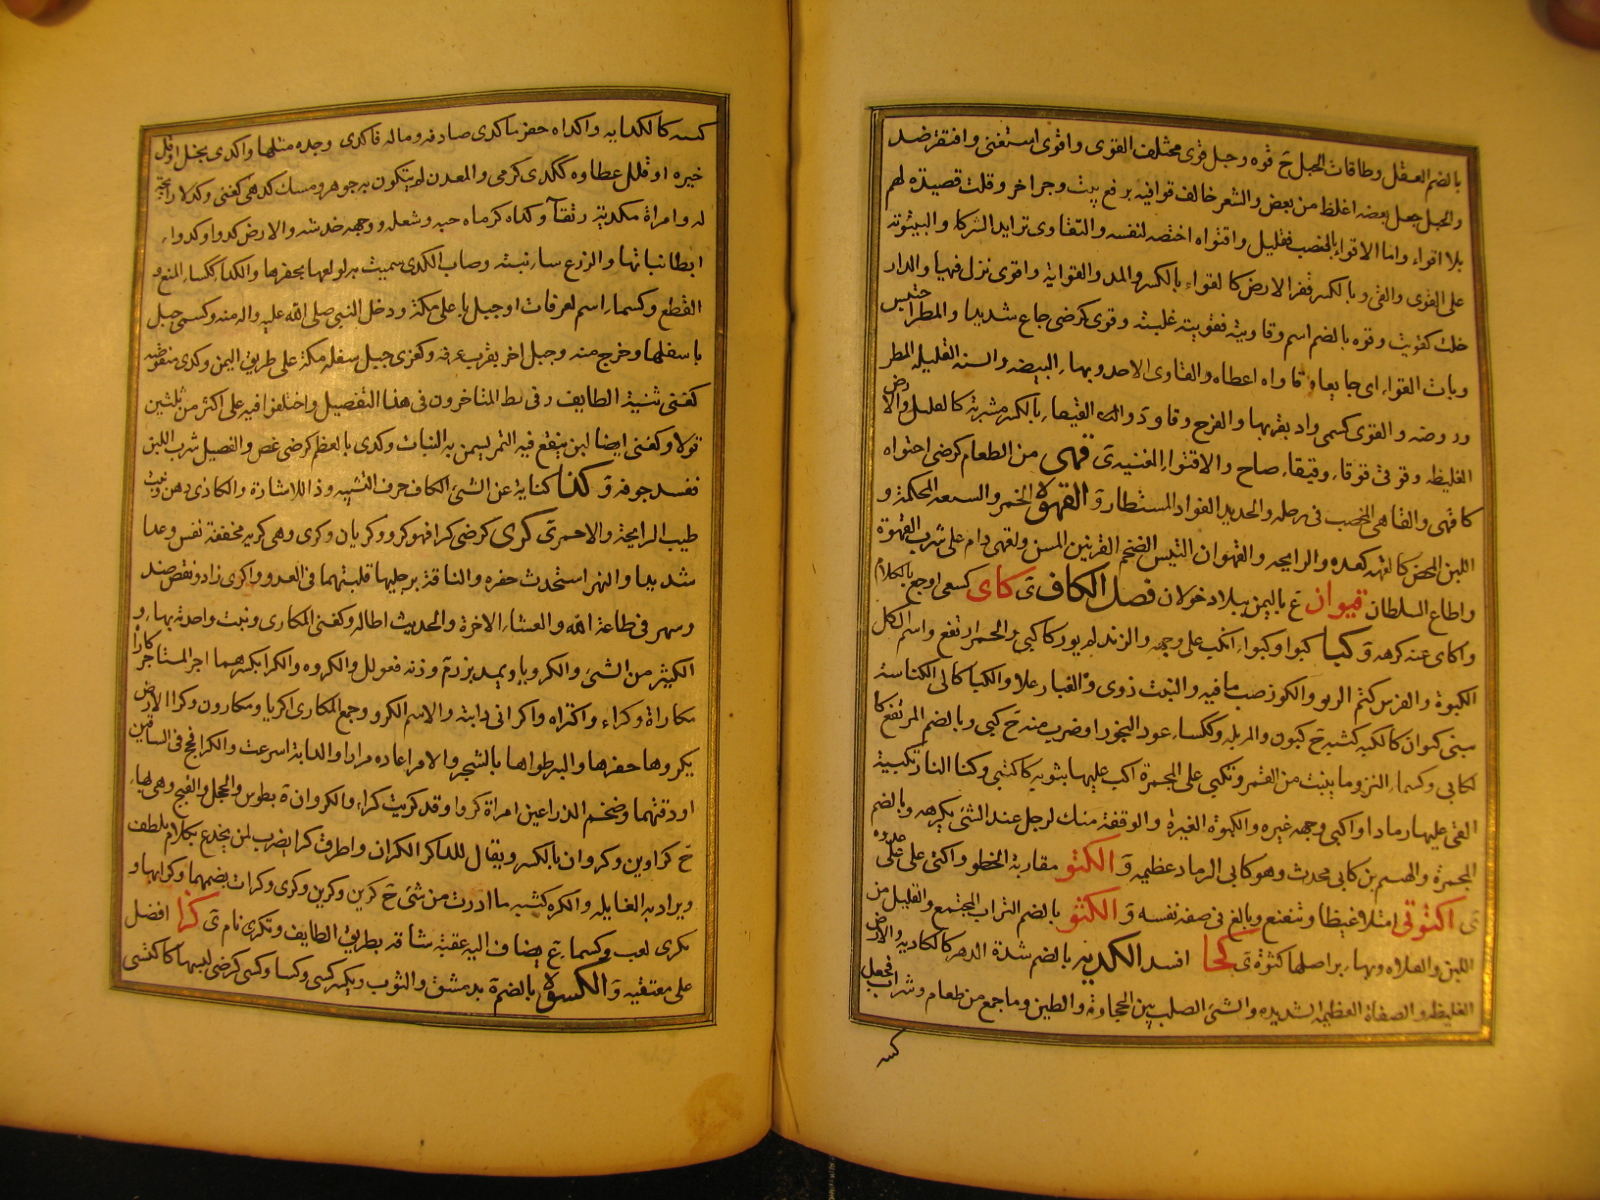 بالضم العقل وطاقات الحبل ج قوه وحبل قوى مختلف القوى واقوى استغنى وافتقر ضد
والحبل جعل بعضه اغلظ من بعض والشعر خالف قوافيه برفع بيت وجر اخر وقلت قصيدة لهم
بلا اقواء واما الاقواء بالنصب فقليل واقتواه اختصه لنفسه والتقاوى تزايد الشركاء والبيتوتة
على القوى والقى بالكسر قفر الارض كالقواء بالكسر والمد والقواية واقوى نزل فيها والدار
خلت كقويت وقوه بالضم اسم وقاويته فقويته غلبته وقوى كرضى جاع شديدا والمطر احتبس
وبات القواء اى جايعا وقاواه اعطاه والقاوى الاخذ وبهاء البيضه والسنه القليله المطر
وروضه والقوى كسمى واد بقربها والفرخ وقاو ة والقيقاء بالكسر مشربة كالتلتله والارض
الغليظه وقوقى قوقاة وقيقاء صاح والاقتواء العتبه ى قهى من الطعام كرضى اجتواه
كاقهى والقاهى المخصب فى رحله والحديد الفواد المستطار و القهوة الخمر والشبعه المحكمة و
اللبن المحض كالقهه كعده والرايحه والقهوان التيس الضخم القرنين المسن واقهى دام على شرب القهوة
واطاع السلطان قيوان ع باليمن ببلاد خولان فصل الكاف ى كاى كسعى اوجع بالكلام
واكاى عنه كرهه و كبا كبوا وكبوا انكب على وجهه والزند لم يور كاكبى والجمر ارتفع واسم الكل
الكبوة والفرس كتم الربو والكوز صب ما فيه والنبت ذوى والغبار علا والكبا كالى الكناسة
مثنى كبوان كالكبه كثبه ج كبون والمزبله وككساء عود البخور او ضرب منه ج كبى وبالضم المرتفع كا
لكابى وكسماء النز وما ينبت من القمر وتكبى على المجمرة اكب عليها بثوبه كاكتبى وكبا النار تكبية
القى عليها رمادا واكبى وجهه غيره والكبوة الغبرة والوقفة منك لرجل عند الشئ يكرهه وبالضم
المجمرة والهيثم بن كابى محدث وهو كابى الرماد عظيمه و الكتو مقاربة الخطو واكتى على عدوه
ى اكتوتى امتلا غيظا وتتعتع وبالغ فى صفة نفسه و الكثو بالضم التراب المجتمع والقليل من
اللبن والقطاه وبهاء براصلها كثوة ى كحا افسد الكديه بالضم شدة الدهر كالكاديه والارض
الغليظه والصفاة العظيمه الشديده والشئ الصلب بين الحجارة والطين وما جمع من طعام وشراب فجعل
كثبه
كثبه كالكدايه واكداه حفر ساكدى صادفه وماله فاكدى وجده مثلها واكدى بخل او قل
خيره او قلل عطاوه ككدى كرمى والمعدن لم يتكون به جوهر ومسك كدى كغنى وكد لا رايحة
له وامراة مكدية رتقآ وكداه كرماه حبسه وشغله ووجهه خدشه والارض كدوا وكدوا
ابطا نباتها والزرع ساء نبته وصاب الكدى سميت به لولعها بحفرها والكداء ككساء المنع و
القطع وكسماء اسم لعرفات او جبل باعلى مكة ودخل النبى صلى الله عليه واله منه وكسمى جبل
باسفلها وخرج منه وجبل اخر بقرب عرفه وكقرى جبل مسفله مكة على طريق اليمن وكدى منقوصه
كفتى ثنية الطايف وفى ط المتاخرون فى هذا التفصيل واختلفوا فيه على اكثر من ثلثين
قولا وكغنى ايضا لبن ينقع فيه التمر يسمن به البنات وكدى بالعظم كرضى غص والفصيل شرب اللبن
ففسد جوفه و كذا كناية عن الشئ الكاف حرف التشبيه وذا للاشارة والكاذى دهن ونبت
طيب الرايحة والاحمر ى كرى كرضى كرا فهو كر وكريان وكرى وهى كريه مخففة نفس وعدا
شديدا والنهر استحدث حفره والناقة برجليها قلبتهما فى العدو واكرى زاد ونقص ضد
وسهر فى طاعة الله والعشاء الاخرة والحديث اطاله وكغنى المكارى ونبت واحدته بهاء و
الكثير من الشئ والكرويا ويمد بزر م وزنه فعولل والكروه والكرا بكسرهما اجر المستاجر كاراه
مكاراة وكراء واكتراه واكرانى دابته والاسم الكرو وجمع المكارى اكريا ومكارون وكرا الارض
يكروها حفرها والبئر طواها بالشجر والامر اعاده مرارا والدابة اسرعت والكرا فحج فى الساقين
او دقتهما وضخم الذراعين امراة كروا وقد كريت كراء والكروان ة بطوس والحجل والقبج وهى بهاء
ج كراوين وكروان بالكسر ويقال للذكر الكران واطرق كرا يضرب لمن يخدع بكلام يلطف
ويراد به الغايله والكره كثبه ما ادرت من شئ ج كرين وكرين وكرى وكرات بضمهما وكرا بها و
تكرى لعب وكسماء ع يضاف اليه عقبة شاقه بطريق الطايف وتكرى نام ى كزا افضل
على معتقيه و الكسوة بالضم ة بدمشق والثوب ويكسر كسى وكسا وكسى كرضى لبسها كاكتسى